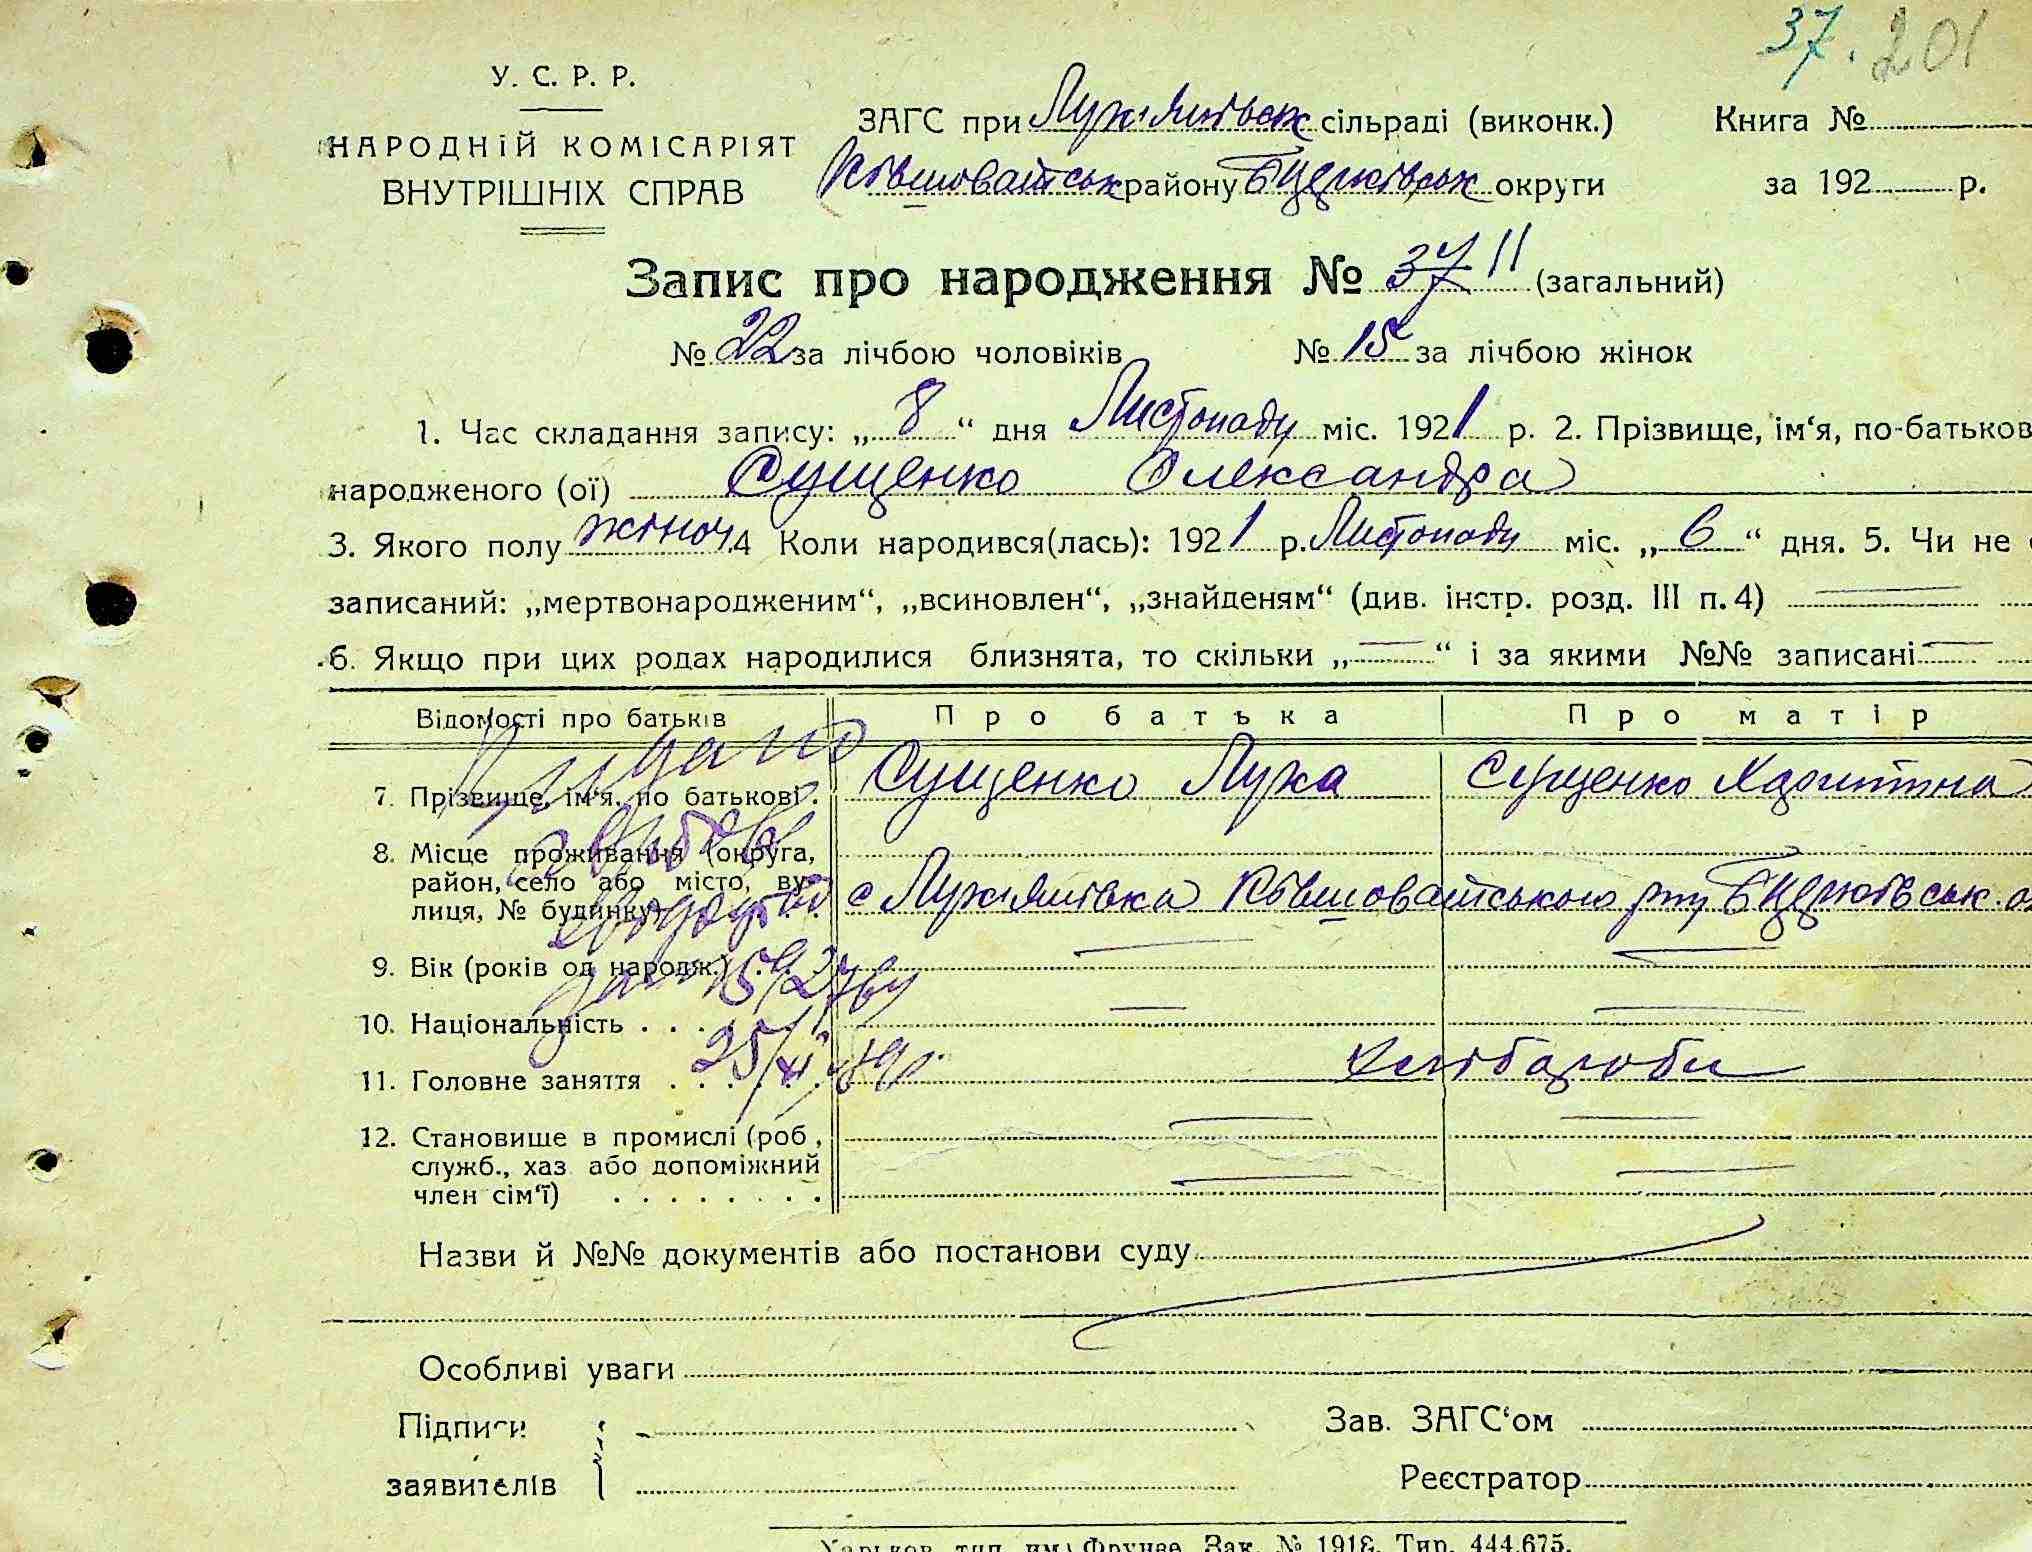 37. 201
У. С. Р. Р.
НАРОДНІЙ КОМІСАРІЯТ
ВНУТРІШНІХ СПРАВ
ЗАГС при Лук'янівськ сільраді (виконк.)
Ківшоватськ району БЦерківськ округи
Книга №
за 192 р.
Запис про народження № 37 11 (загальний)
№ 22 за лічбою чоловіків № 15 за лічбою жінок
1. Час складання запису: „8“ дня Листопаду міс. 1921 р. 2. Прізвище, ім‘я, по-батьков
народженого (ої) Сущенко Олександра
3. Якого полу жіноч. 4 Коли народився(лась): 1921 р. Листопаду міс. „6“ дня. 5. Чи не
записаний: „мертвонародженим“, „всиновлен“, „знайденям“ (див. інстр. розд. III п. 4) —
6. Якщо при цих родах народилися близнята, то скільки „—“ і за якими №№ записані —
Відомості про батьків Про батька Про матір
7. Прізвище, ім‘я, по батькові . Сущенко Лука Сущенко Харитина
8. Місце проживання (округа,
район, село або місто, ву-
лиця, № будинку) с Лук'янівка Ківшоватського р-ну БЦерківськ. о
9. Вік (років од народж.) . . — —
10. Національність . . . . . — —
11. Головне заняття . . . . . . хлібороби
12. Становище в промислі (роб., — —
служб., хаз. або допоміжний
член сім‘ї) . . . . . . . . — —
Видано
25/XI
Назви й №№ документів або постанови суду
Особливі уваги
Підписи
заявителів
Зав. ЗАГС‘ом
Реєстратор
Харьков, тип. им. Фрунзе. Зак. № 1918. Тир. 444.675.